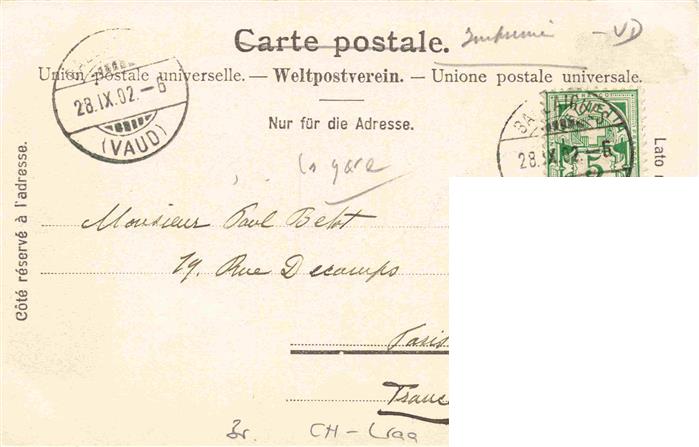 Carte postale. Imprimé - VD
Union postale universelle. — Weltpostverein. — Unione postale universale.
Nur für die Adresse.
28.IX.02.-6
(VAUD)
BALLAIGUES
28.IX.02.-6
5
Côté réservé à l'adresse.
Lato
la gare
Monsieur Paul Belot
19. Rue Decamps
Paris
Franc
CH -